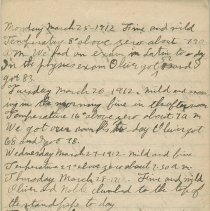 Monday March 25-1912 Fine and mild
Temperature 8° above zero about 7.30
a.m. We had an exam in Latin to-day
In the physics exam Oliver got and I
got 83.
Tuesday March 26, 1912 mild and snow
ing in the morning fine in the afternoon
Temperature 16° above zero about 7 a.m
We got our marks to day Oliver got
68 and I got 98.
Wednesday March 27-1912 mild and fine
Temperature 27° above zero about 7.30 a.m.
Thursday March 28-1912 Fine and mild
Oliver and Noble climbed to the top of
the standpipe to day